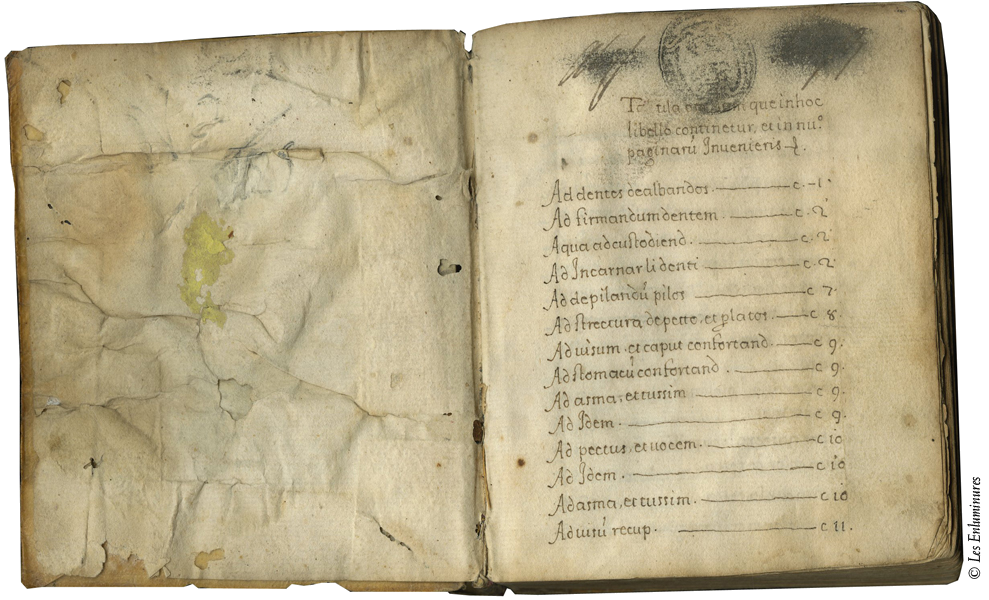 Tabula omnium que in hoc
libello continetur, et in nu.º
paginarũ Inuenieris
Ad dentes dealbandos. c. 1
Ad firmandum dentem. c. 2
Aqua ad custodiend. c. 2
Ad Incarnar li denti c. 2
Ad depilandũ pilos c 7.
Ad strectura de petto, et platos. c 8.
Ad uisum et caput confortand. c 9.
Ad stomacũ confortand. c 9.
Ad asma, et tussim c 9.
Ad Idem. c 9.
Ad pectus, et uocem. c 10
Ad Idem. c 10
Ad asma, et tussim. c 10
Ad uisũ recup. c 11.
© Les Enluminures